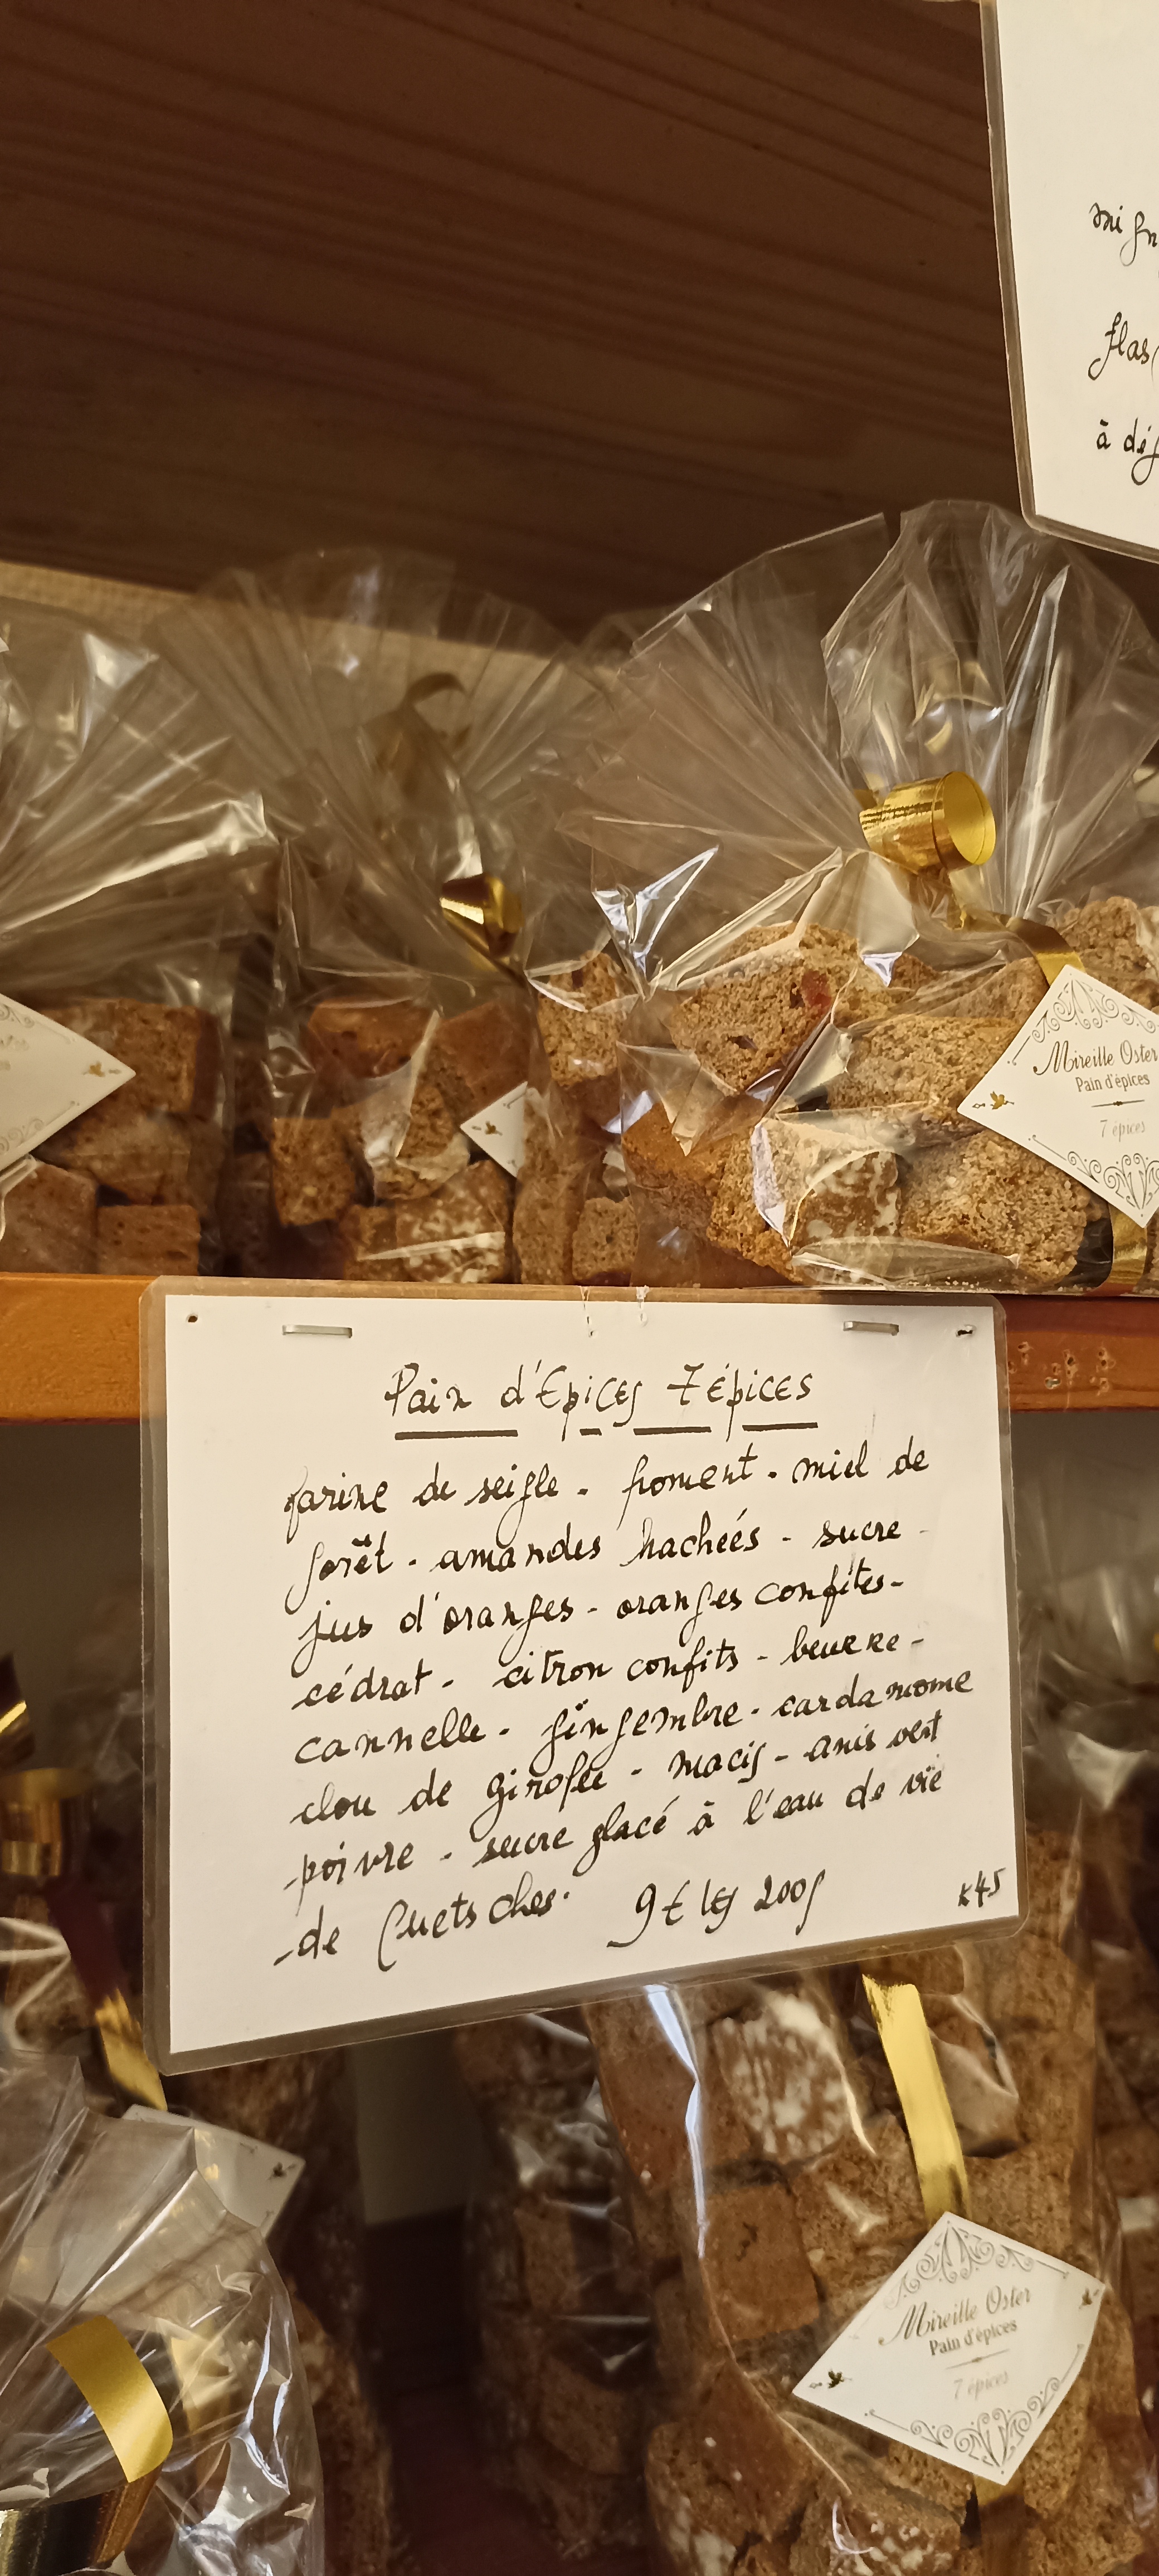 Mireille Oster
Pain d'épices
7 épices
Pain d'Epices 7 épices
farine de seigle - froment - miel de
forêt - amandes hacheés - sucre -
jus d'oranges - oranges confites -
cédrat - citron confits - beurre -
cannelle - gingembre - cardamome
clou de girofle - macis - anis vert
- poivre - sucre glacé à l'eau de vie
- de Quetsches. 9€ les 200g
Mireille Oster
Pain d'épices
7 épices